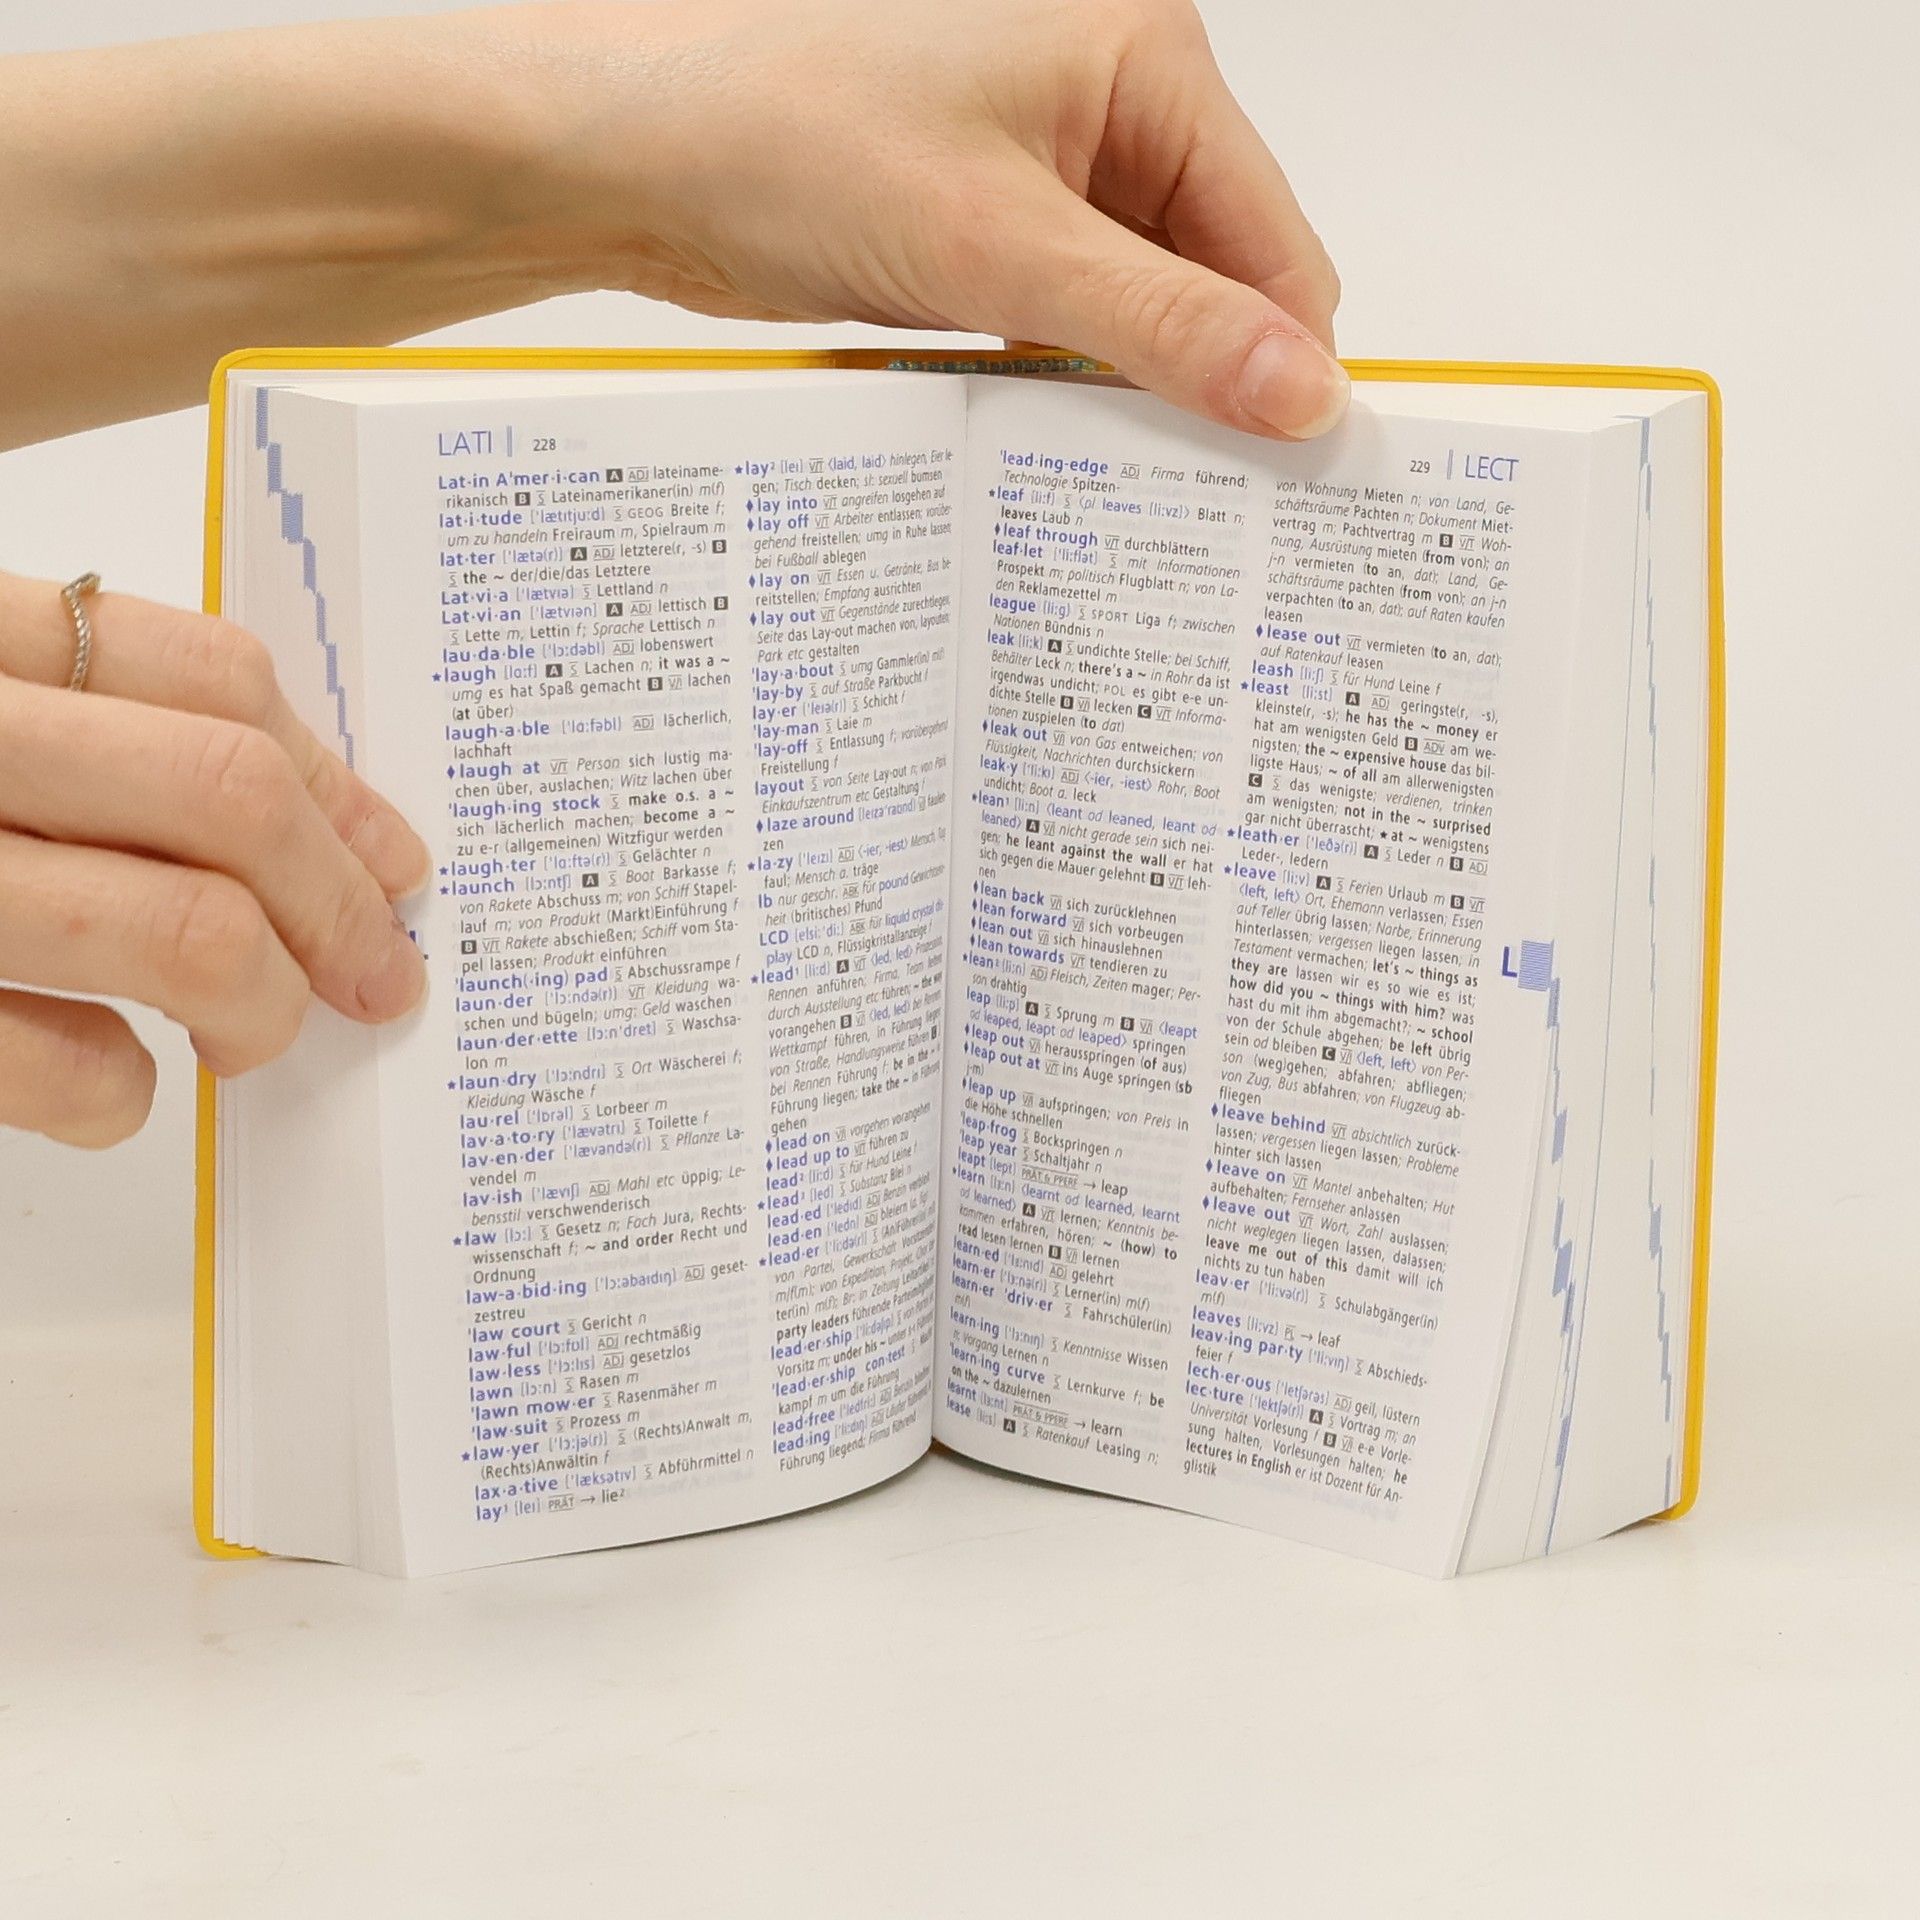 LATI 228
Lat·in A'mer·i·can A ADJ lateiname-
rikanisch B S Lateinamerikaner(in) m(f)
lat·i·tude ['lætɪtjuːd] S GEOG Breite f;
um zu handeln Freiraum m, Spielraum m
lat·ter ['lætə(r)] A ADJ letztere(r, -s) B
S the ~ der/die/das Letztere
Lat·vi·a ['lætvɪə] S Lettland n
Lat·vi·an ['lætvɪən] A ADJ lettisch B
S Lette m, Lettin f; Sprache Lettisch n
lau·da·ble ['lɔːdəbl] ADJ lobenswert
★laugh [lɑːf] A S Lachen n; it was a ~
umg es hat Spaß gemacht B V/I lachen
(at über)
laugh·a·ble ['lɑːfəbl] ADJ lächerlich,
lachhaft
♦laugh at V/T Person sich lustig ma-
chen über, auslachen; Witz lachen über
'laugh·ing stock S make o.s. a ~
sich lächerlich machen; become a ~
zu e-r (allgemeinen) Witzfigur werden
★laugh·ter ['lɑːftə(r)] S Gelächter n
★launch [lɔːntʃ] A S Boot Barkasse f;
von Rakete Abschuss m; von Schiff Stapel-
lauf m; von Produkt (Markt)Einführung f
B V/T Rakete abschießen; Schiff vom Sta-
pel lassen; Produkt einführen
'launch(·ing) pad S Abschussrampe f
laun·der ['lɔːndə(r)] V/T Kleidung wa-
schen und bügeln; umg: Geld waschen
laun·der·ette [lɔːn'dret] S Waschsa-
lon m
★laun·dry ['lɔːndrɪ] S Ort Wäscherei f;
Kleidung Wäsche f
lau·rel ['lɒrəl] S Lorbeer m
lav·a·to·ry ['lævətrɪ] S Toilette f
lav·en·der ['lævəndə(r)] S Pflanze La-
vendel m
lav·ish ['lævɪʃ] ADJ Mahl etc üppig; Le-
bensstil verschwenderisch
★law [lɔː] S Gesetz n; Fach Jura, Rechts-
wissenschaft f; ~ and order Recht und
Ordnung
law-a·bid·ing ['lɔːəbaɪdɪŋ] ADJ geset-
zestreu
'law court S Gericht n
law·ful ['lɔːfʊl] ADJ rechtmäßig
law·less ['lɔːlɪs] ADJ gesetzlos
lawn [lɔːn] S Rasen m
'lawn mow·er S Rasenmäher m
'law·suit S Prozess m
★law·yer ['lɔːjə(r)] S (Rechts)Anwalt m,
(Rechts)Anwältin f
lax·a·tive ['læksətɪv] S Abführmittel n
lay¹ [leɪ] PRÄT → lie²
★lay² [leɪ] V/T ⟨laid, laid⟩ hinlegen, Eier le-
gen; Tisch decken; sl: sexuell bumsen
♦lay into V/T angreifen losgehen auf
♦lay off V/T Arbeiter entlassen; vorüber-
gehend freistellen; umg in Ruhe lassen
bei Fußball ablegen
♦lay on V/T Essen u. Getränke, Bus be-
reitstellen; Empfang ausrichten
♦lay out V/T Gegenstände zurechtlegen,
Seite das Lay-out machen von, layouten
Park etc gestalten
'lay·a·bout S umg Gammler(in) m(f)
'lay-by S auf Straße Parkbucht f
lay·er ['leɪə(r)] S Schicht f
'lay·man S Laie m
'lay-off S Entlassung f; vorübergehend
Freistellung f
layout S von Seite Lay-out n; von Park
Einkaufszentrum etc Gestaltung f
♦laze around [leɪzə'raʊnd] V/I faulen-
zen
★la·zy ['leɪzɪ] ADJ ⟨-ier, -iest⟩ Mensch, Tag
faul; Mensch a. träge
lb nur geschr. ABK für pound Gewichtsein-
heit (britisches) Pfund
LCD [elsiː'diː] ABK für liquid crystal di-
play LCD n, Flüssigkristallanzeige f
★lead¹ [liːd] A V/T ⟨led, led⟩ Prozession,
Rennen anführen; Firma, Team leiten
durch Ausstellung etc führen; ~ the way
vorangehen B V/I ⟨led, led⟩ bei Rennen
Wettkampf führen, in Führung liegen
von Straße, Handlungsweise führen C
bei Rennen Führung f; be in the ~ in
Führung liegen; take the ~ in Führung
gehen
♦lead on V/I vorgehen vorangehen
♦lead up to V/T führen zu
lead² [liːd] S für Hund Leine f
★lead³ [led] S Substanz Blei n
lead·ed ['ledɪd] ADJ Benzin verbleit
lead·en ['ledn] ADJ bleiern (a. fig)
★lead·er ['liːdə(r)] S (An)Führer(in) m(f)
von Partei, Gewerkschaft Vorsitzende(r)
m/f(m); von Expedition, Projekt, Chor Lei-
ter(in) m(f); Br: in Zeitung Leitartikel
party leaders führende Parteimitglieder
lead·er·ship ['liːdəʃɪp] S von Partei etc
Vorsitz m; under his ~ unter s-r Führung
'lead·er·ship con·test S
kampf m um die Führung
lead-free ['ledfriː] ADJ Benzin bleifrei
lead·ing ['liːdɪŋ] ADJ Läufer führend, in
Führung liegend; Firma führend
229 LECT
'lead·ing-edge ADJ Firma führend;
Technologie Spitzen-
★leaf [liːf] S ⟨pl leaves [liːvz]⟩ Blatt n;
leaves Laub n
♦leaf through V/T durchblättern
leaf·let ['liːflət] S mit Informationen
Prospekt m; politisch Flugblatt n; von La-
den Reklamezettel m
league [liːg] S SPORT Liga f; zwischen
Nationen Bündnis n
leak [liːk] A S undichte Stelle; bei Schiff,
Behälter Leck n; there's a ~ in Rohr da ist
irgendwas undicht; POL es gibt e-e un-
dichte Stelle B V/I lecken C V/T Informa-
tionen zuspielen (to dat)
♦leak out V/I von Gas entweichen; von
Flüssigkeit, Nachrichten durchsickern
leak·y ['liːkɪ] ADJ ⟨-ier, -iest⟩ Rohr, Boot
undicht; Boot a. leck
★lean¹ [liːn] ⟨leant od leaned, leant od
leaned⟩ A V/I nicht gerade sein sich nei-
gen; he leant against the wall er hat
sich gegen die Mauer gelehnt B V/T leh-
nen
♦lean back V/I sich zurücklehnen
♦lean forward V/I sich vorbeugen
♦lean out V/I sich hinauslehnen
♦lean towards V/T tendieren zu
★lean² [liːn] ADJ Fleisch, Zeiten mager; Per-
son drahtig
leap [liːp] A S Sprung m B V/I ⟨leapt
od leaped, leapt od leaped⟩ springen
♦leap out V/I herausspringen (of aus)
♦leap out at V/T ins Auge springen (sb
j-m)
♦leap up V/I aufspringen; von Preis in
die Höhe schnellen
'leap·frog S Bockspringen n
'leap year S Schaltjahr n
leapt [lept] PRÄT & PPERF → leap
★learn [lɜːn] ⟨learnt od learned, learnt
od learned⟩ A V/T lernen; Kenntnis be-
kommen erfahren, hören; ~ (how) to
read lesen lernen B V/I lernen
learn·ed ['lɜːnɪd] ADJ gelehrt
learn·er ['lɜːnə(r)] S Lerner(in) m(f)
learn·er 'driv·er S Fahrschüler(in)
m(f)
learn·ing ['lɜːnɪŋ] S Kenntnisse Wissen
n; Vorgang Lernen n
'learn·ing curve S Lernkurve f; be
on the ~ dazulernen
learnt [lɜːnt] PRÄT & PPERF → learn
lease [liːs] A S Ratenkauf Leasing n;
von Wohnung Mieten n; von Land, Ge-
schäftsräume Pachten n; Dokument Miet-
vertrag m; Pachtvertrag m B V/T Woh-
nung, Ausrüstung mieten (from von); an
j-n vermieten (to an, dat); Land, Ge-
schäftsräume pachten (from von); an j-n
verpachten (to an, dat); auf Raten kaufen
leasen
♦lease out V/T vermieten (to an, dat);
auf Ratenkauf leasen
leash [liːʃ] S für Hund Leine f
★least [liːst] A ADJ geringste(r, -s),
kleinste(r, -s); he has the ~ money er
hat am wenigsten Geld B ADV am we-
nigsten; the ~ expensive house das bil-
ligste Haus; ~ of all am allerwenigsten
C S das wenigste; verdienen, trinken
am wenigsten; not in the ~ surprised
gar nicht überrascht; ★at ~ wenigstens
★leath·er ['leðə(r)] A S Leder n B ADJ
Leder-, ledern
★leave [liːv] A S Ferien Urlaub m B V/T
⟨left, left⟩ Ort, Ehemann verlassen; Essen
auf Teller übrig lassen; Narbe, Erinnerung
hinterlassen; vergessen liegen lassen; in
Testament vermachen; let's ~ things as
they are lassen wir es so wie es ist;
how did you ~ things with him? was
hast du mit ihm abgemacht?; ~ school
von der Schule abgehen; be left übrig
sein od bleiben C V/I ⟨left, left⟩ von Per-
son (weg)gehen; abfahren; abfliegen;
von Zug, Bus abfahren; von Flugzeug ab-
fliegen
♦leave behind V/T absichtlich zurück-
lassen; vergessen liegen lassen; Probleme
hinter sich lassen
♦leave on V/T Mantel anbehalten; Hut
aufbehalten; Fernseher anlassen
♦leave out V/T Wort, Zahl auslassen;
nicht weglegen liegen lassen, dalassen;
leave me out of this damit will ich
nichts zu tun haben
leav·er ['liːvə(r)] S Schulabgänger(in)
m(f)
leaves [liːvz] PL → leaf
leav·ing par·ty ['liːvɪŋ] S Abschieds-
feier f
lech·er·ous ['letʃərəs] ADJ geil, lüstern
lec·ture ['lektʃə(r)] A S Vortrag m; an
Universität Vorlesung f B V/I e-e Vorle-
sung halten, Vorlesungen halten; he
lectures in English er ist Dozent für An-
glistik
L